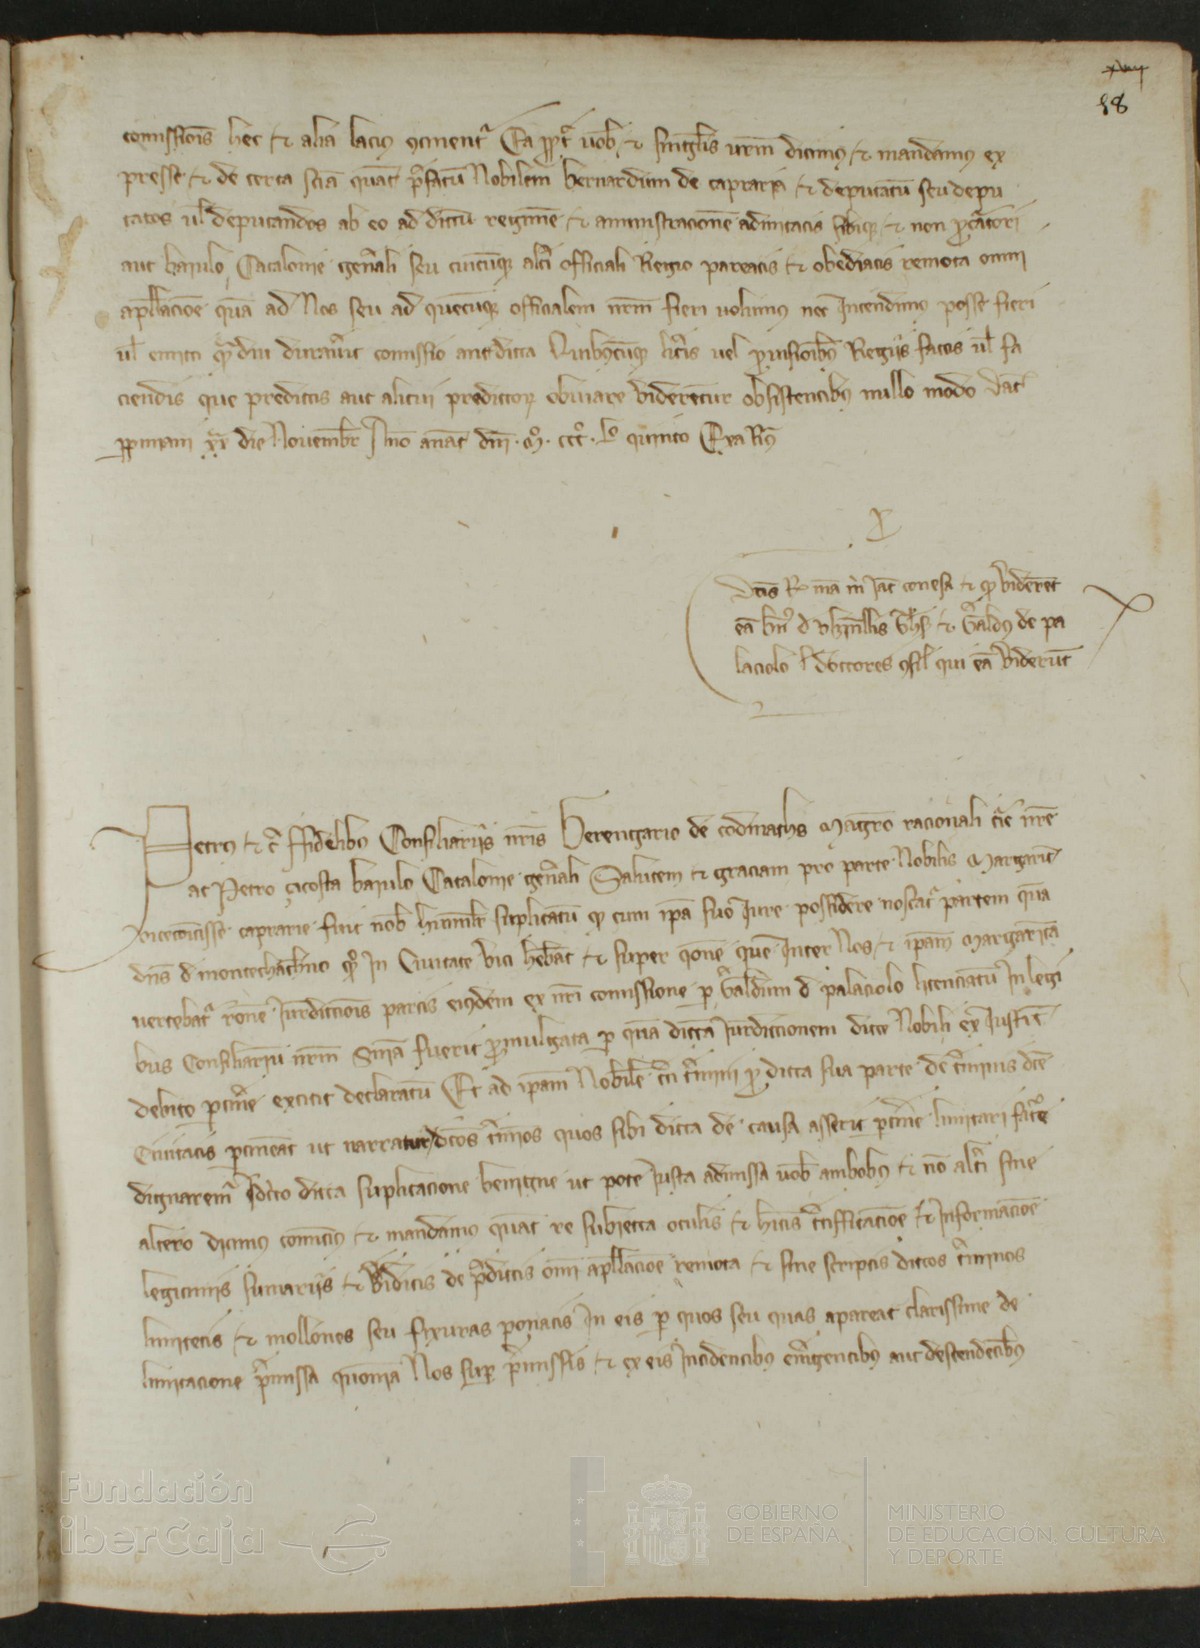 xviij
18
comissionis hec et alia lacius continentur Ea propter vobis et singulis vestrum dicimus et mandamus ex
presse et de certa sciencia quatenus prefatum Nobilem bernardum de capraria et deputatum seu depu
tatos vel deputandos ab eo ad dictum regimen et aministracionem admitatis sibique et non procuratori
aut baiulo Catalonie generali seu cuicumque alteri officiali Regio pareatis et obediatis remota omni
apellacione quam ad Nos seu ad quemcumque officialem nostrum fieri volumus nec Intendimus posse fieri
vel emiti quamdiu duraverit comissio antedicta Quibuscumque literis vel provisionibus Regiis factis vel fa
ciendis que predictis aut alicui predictorum obviare viderentur obsistentibus nullo modo Datum
perpiniani die Novembris Anno anat domini Mº CCCº Lº quinto Exa Rus
Dominus Rex mandavit michi Jac conesa et providerunt
eam de et Geraldus de pa
laciolo legum doctores consiliarii qui eam viderunt
Petrus etc fidelibus Consiliariis nostris Berengario de codinachs Magistro racionali curie nostre
ac Petro çacosta baiulo Catalonie generali Salutem et graciam pro parte Nobilis Margarite
vicecomitisse caprarie fuit nobis humiliter suplicatum quod cum ipsa suo Iure possidere noscatur partem quam
dominus de montechateno quondam In Civitate Vici habebat et super questione que Inter Nos et ipsam Margaritam
vertebatur racione Iurdiccionis partis eiusdem ex nostri comissione per Geraldum de palaciolo licenciatum In legi
bus Consiliarium nostrum Sentencia fuerit promulgata per quam dictam Iurdiccionem dicte Nobili ex Iusticie
debito pertinere extitit declaratum Et ad ipsam Nobilem certi termini pro dicta sua parte de terminis dicte
Civitatis pertineat ut narratur dictos terminos quos sibi dicta de causa asserit pertinere limitari facere
dignaremur Idcirco dicta suplicacione benigne ut pote Iusta admissa vobis ambobus et non alteri sine
altero dicimus comitimus et mandamus quatenus re subiecta oculis et habitis certificacione et Informacione
legitimis sumariis et de predictis omni apellacione remota et sine scriptis dictos terminos
limitetis et mollones seu fixuras ponatis In eis per quos seu quas apareat clarissime de
limitacione premissa quoniam Nos super premissis et ex eis Incidentibus emergentibus aut descendentibus
Fundación
iberCaja
GOBIERNO
DE ESPAÑA
MINISTERIO
DE EDUCACIÓN, CULTURA
Y DEPORTE